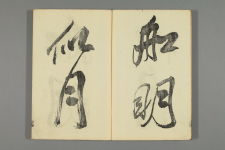 船明
似月